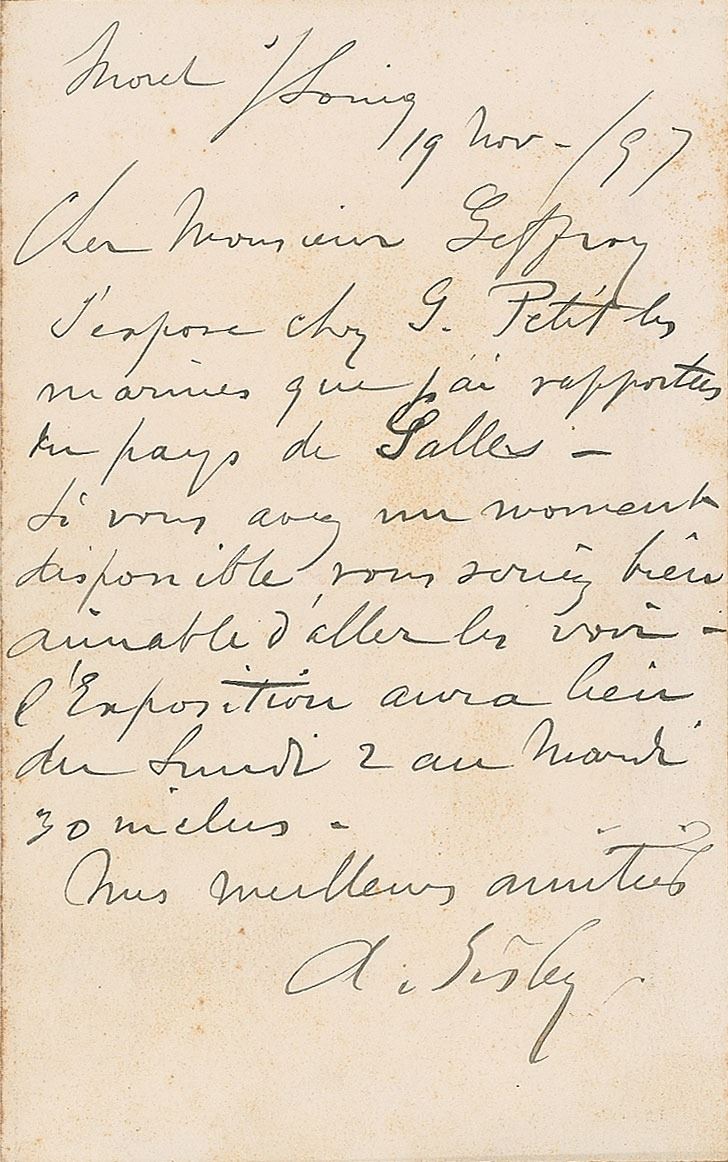 Moret s/Loing
19 Nov - /97
Cher Monsieur Geffroy
J'expose chez G. Petit les
marines que j'ai rapportées
du pays de Galles -
Si vous avez un moment
disponible, vous seriez bien
aimable d'aller les voir -
l'Exposition aura lieu
du Lundi 2 au Mardi
30 inclus -
Mes meilleures amitiés
A. Sisley